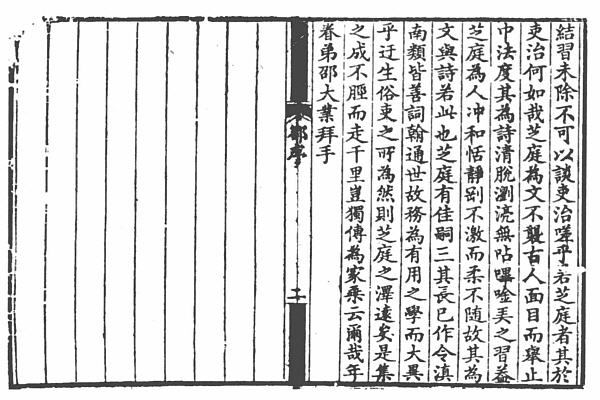 結習未除不可以談吏治嗟乎若芝庭者其於
吏治何如哉芝庭為文不襲古人面目而舉止
中法度其為詩清脫瀏亮無呫嗶唫㕦之習益
芝庭為人冲和恬靜剛不激而柔不随故其為
文與詩若此也芝庭有佳嗣三其長已作令滇
南類皆善詞翰通世故務為有用之學而大異
乎迂生俗吏之所為然則芝庭之澤遠矣是集
之成不脛而走千里豈獨傳為家乗云爾哉年
眷弟邵大業拜手
邵序
二